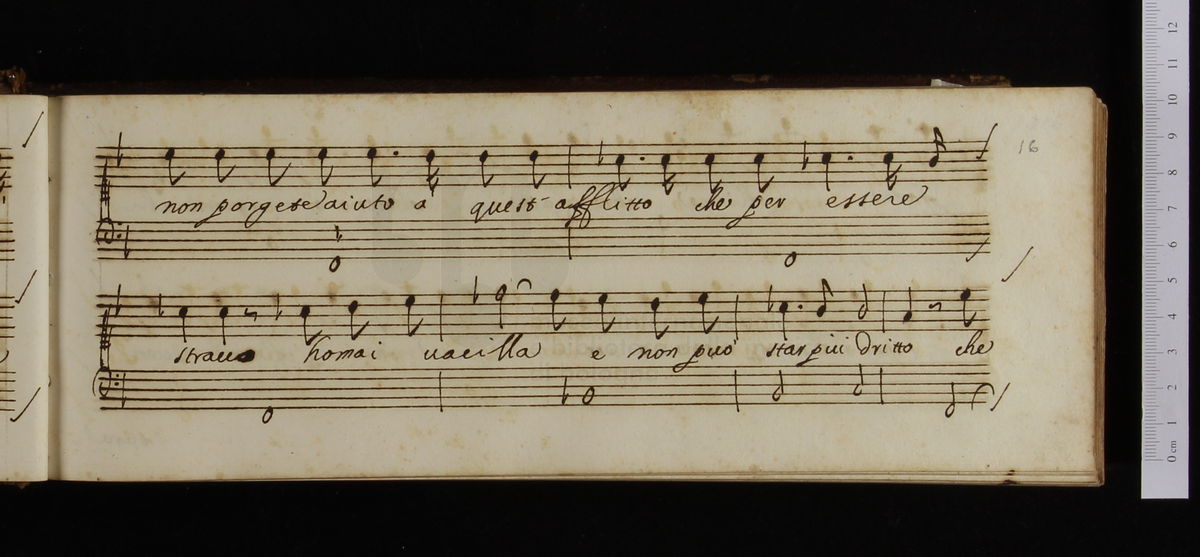 16
non porgete aiuto a quest afflitto che per essere
stracco homai uacilla e non può star più dritto che
12
11
10
9
8
7
6
5
4
3
2
1
0 cm